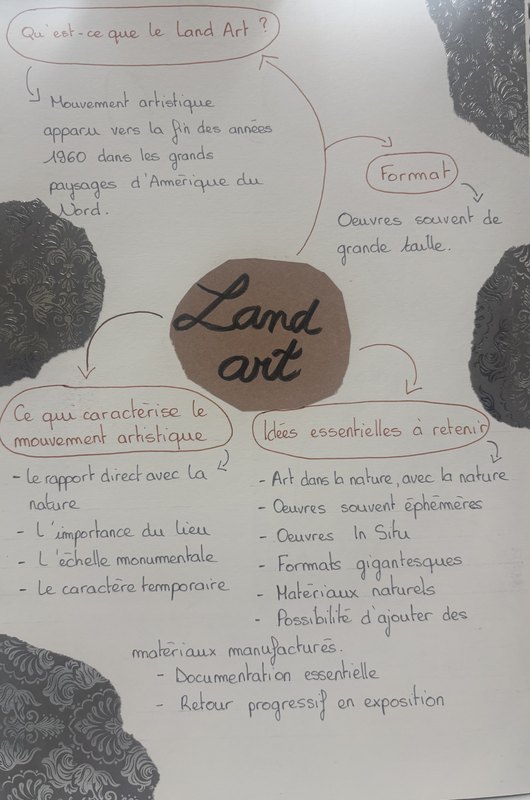 Qu'est-ce que le Land Art ?
Mouvement artistique
apparu vers la fin des années
1960 dans les grands
paysages d'Amérique du
Nord.
Format
Oeuvres souvent de
grande taille.
Land
art
Ce qui caractèrise le
mouvement artistique
- Le rapport direct avec la
nature
- L'importance du lieu
- L'échelle monumentale
- Le caractère temporaire
Idées essentielles à retenir
- Art dans la nature, avec la nature
- Oeuvres souvent éphémères
- Oeuvres In Situ
- Formats gigantesques
- Matériaux naturels
- Possibilité d'ajouter des
matériaux manufacturés.
- Documentation essentielle
- Retour progressif en exposition